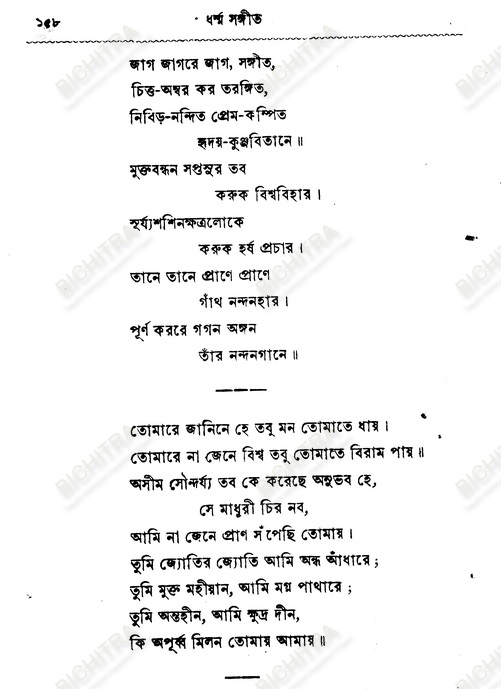 ১৫৮
ধর্ম্ম সঙ্গীত
জাগ জাগরে জাগ, সঙ্গীত,
চিত্ত-অম্বর কর তরঙ্গিত,
নিবিড়-নন্দিত প্রেম-কম্পিত
হৃদয়-কুঞ্জবিতানে॥
মুক্তবন্ধন সপ্তসুর তব
করুক বিশ্ববিহার।
সূর্য্যশশিনক্ষত্রলোকে
করুক হর্ষ প্রচার।
তানে তানে প্রাণে প্রাণে
গাঁথ নন্দনহার।
পূর্ণ কররে গগন অঙ্গন
তাঁর নন্দনগানে॥
তোমারে জানিনে হে তবু মন তোমাতে ধায়।
তোমারে না জেনে বিশ্ব তবু তোমাতে বিরাম পায়॥
অসীম সৌন্দর্য্য তব কে করেছে অনুভব হে,
সে মাধুরী চির নব,
আমি না জেনে প্রাণ সঁপেছি তোমায়।
তুমি জ্যোতির জ্যোতি আমি অন্ধ আঁধারে;
তুমি মুক্ত মহীয়ান, আমি মগ্ন পাথারে;
তুমি অন্তহীন, আমি ক্ষুদ্র দীন,
কি অপূর্ব্ব মিলন তোমায় আমায়॥
BICHITRA
BICHITRA
BICHITRA
BICHITRA
BICHITRA
BICHITRA
BICHITRA
BICHITRA
BICHITRA